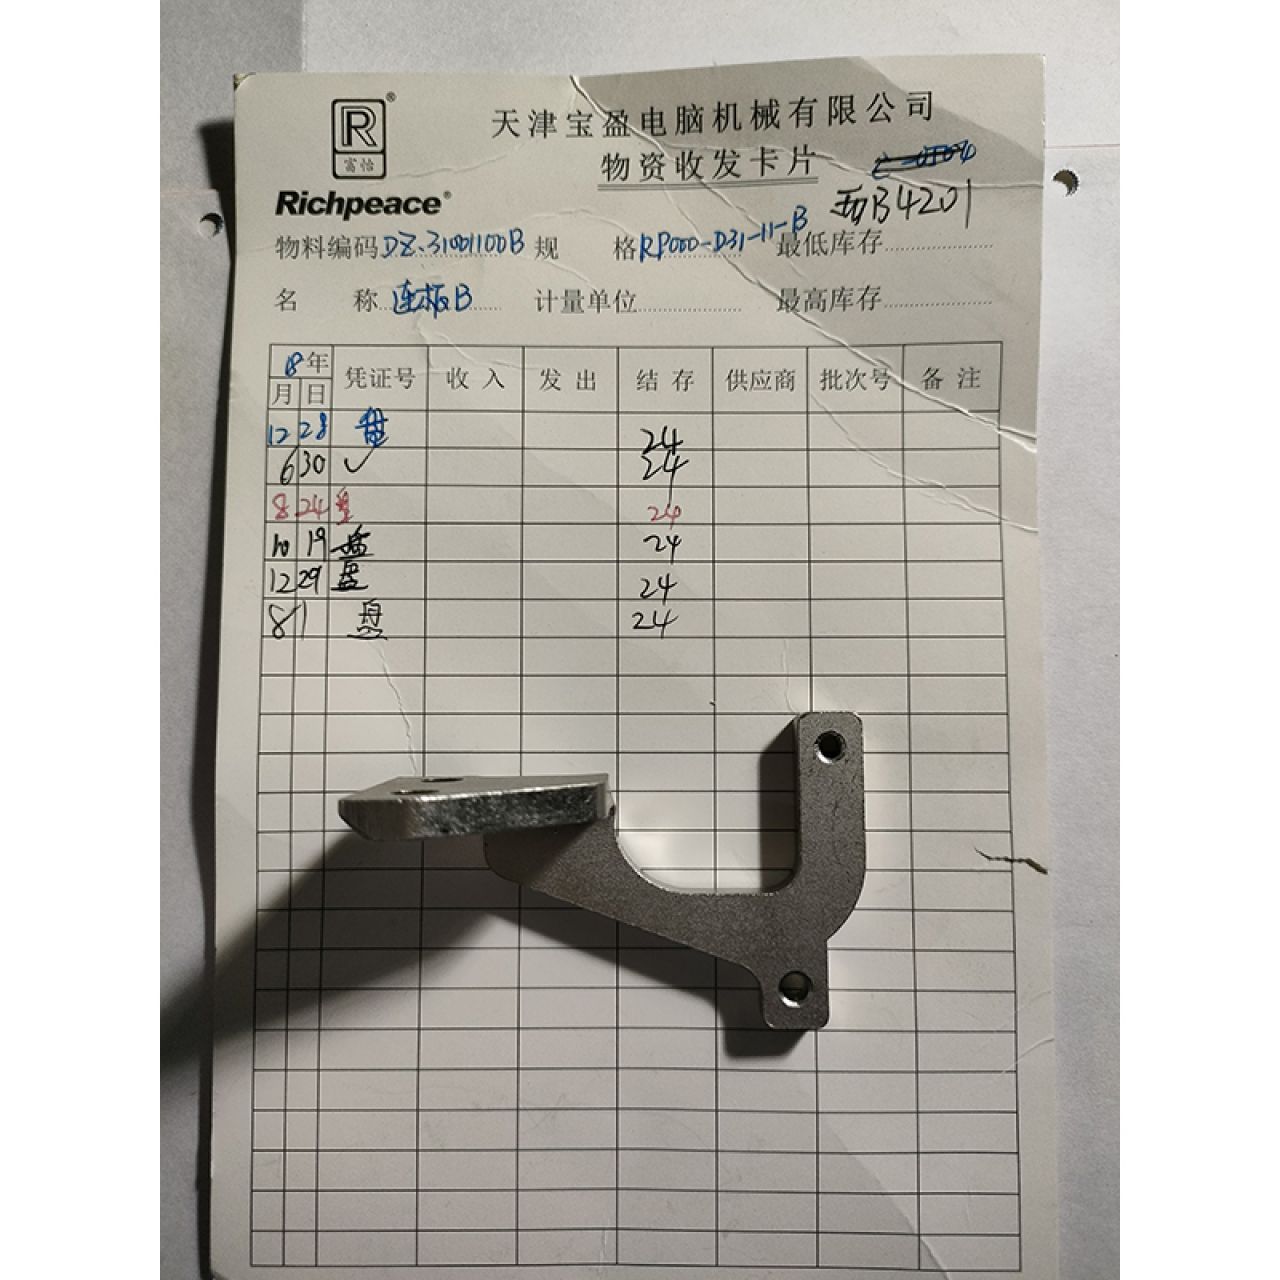 R®
富怡
Richpeace®
天津宝盈电脑机械有限公司
物资收发卡片
西B4201
物料编码 DZ.31001100B 规 格 RP000-D31-11-B 最低库存
名 称 连板B 计量单位 最高库存
18年 凭证号 收入 发出 结存 供应商 批次号 备注
月 日
12 28 盘 24
6 30 ✓ 24
8 24 盘 24
10 19 盘 24
12 29 盘 24
8 1 盘 24